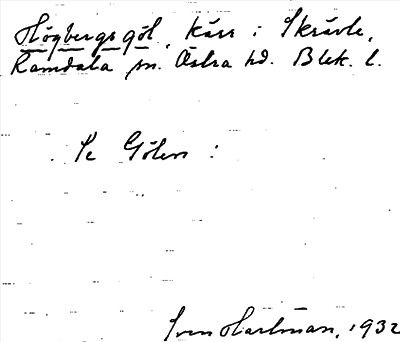 Högbergsgöl, Kärr i Skrävle,
Ramdala sn. Östra hd. Blek. l.
Se Gölen :
Sven Hartman, 1932